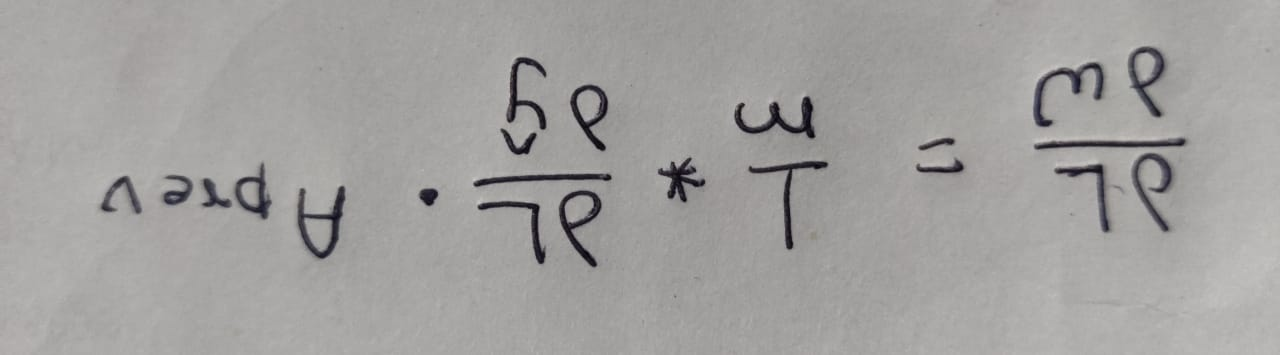 ∂L/∂w = 1/m * ∂L/∂ŷ . A prev